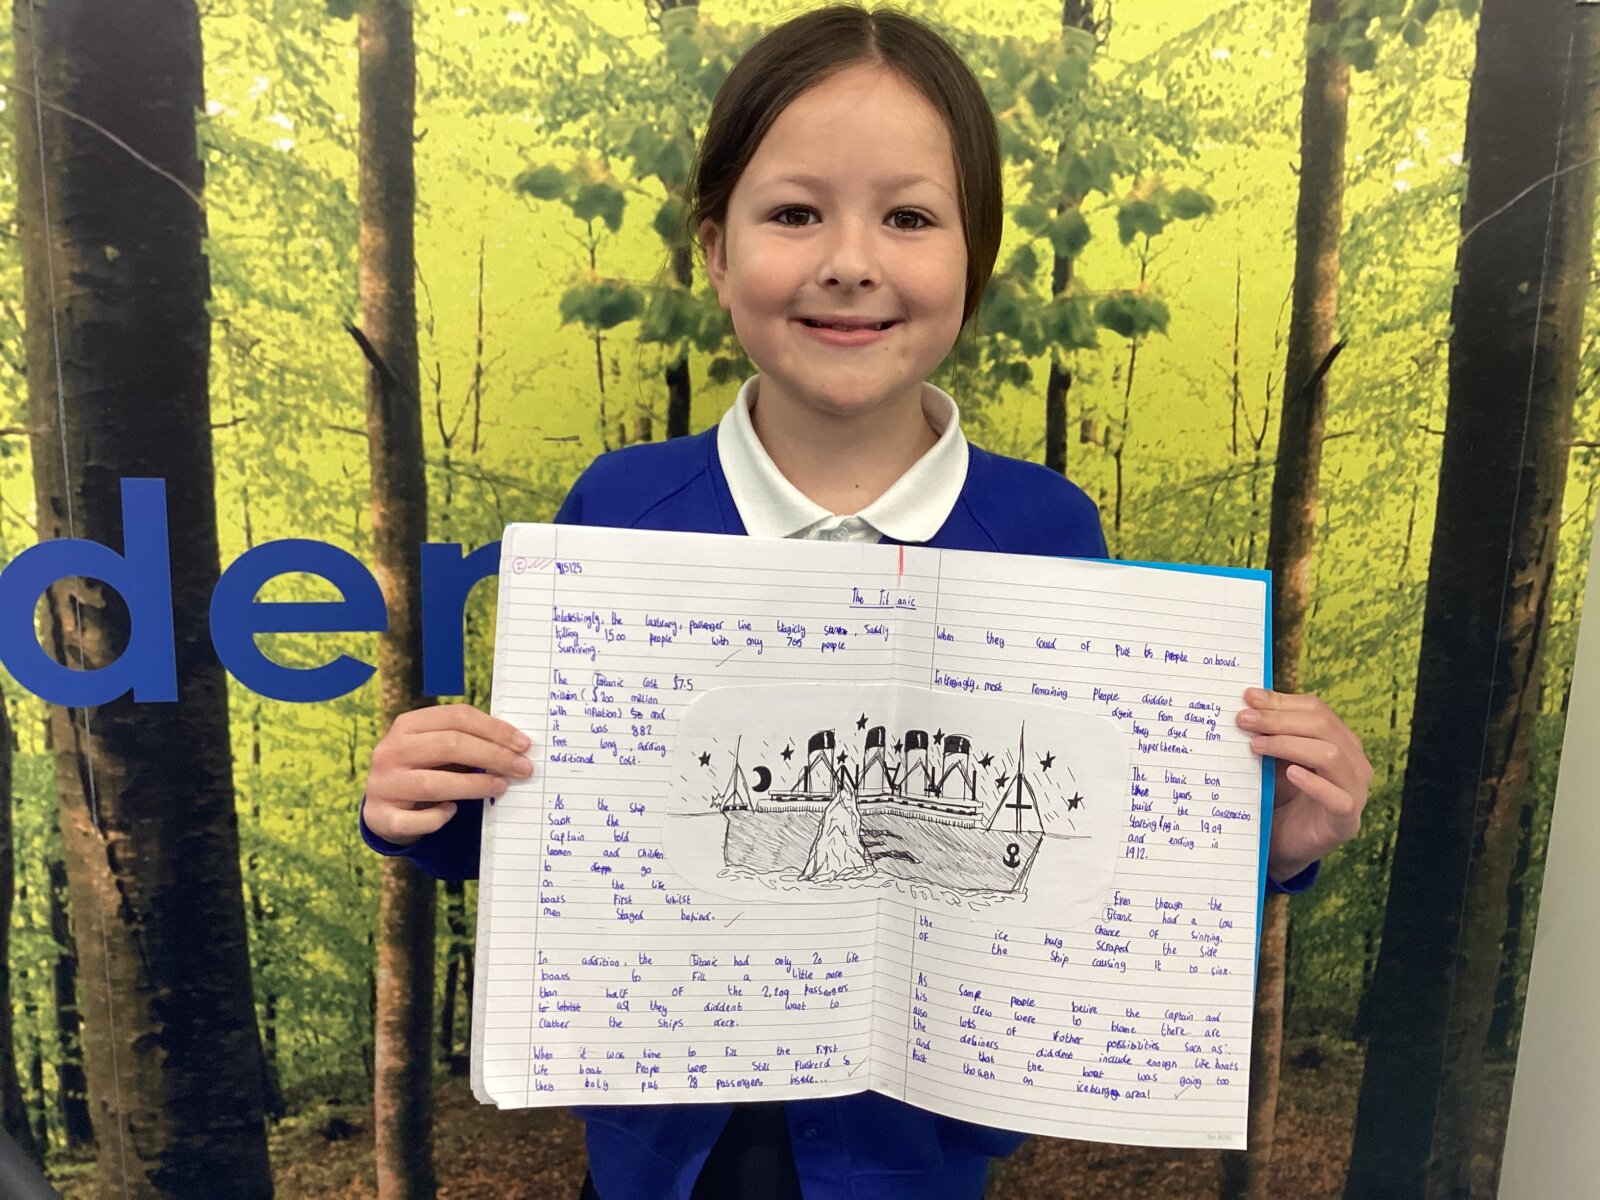 der
9/5/25
The Titanic
Interestingly, the luxurary, passenger line tragiclly sunk, sadly
killing 1500 people with only 705 people
surviving.
The Titanic cost $7.5
million ( $200 million
with inflation) so and
it was 882
feet long, adding
additional cost.
As the ship
sank the
Captain told
women and children
to go
on the life
boats first whilst
men stayed behind.
In addition, the Titanic had only 20 life
boats to fill a little more
than half of the 2,209 passengers
to whilst as they diddent want to
clutter the ships deck.
When it was time to fill the first
life boat people were still flusterd so
they only put 28 passengers inside...
when they could of put 65 people onboard.
Intresingly, most remaining pleople diddent actualy
dyeie from drowning
they dyed from
hyperthermia.
The titanic took
three years to
build the construction
starting in 1909
and ending in
1912.
Even though the
Titanic had a low
chance of sinking,
the ice burg scraped the side
of the ship causing it to sink.
As some people belive the captain and
his crew were to blame there are
also lots of other possibilities such as:
the desiners diddent include enough life boats
and that the boat was going too
fast though an iceburg area!